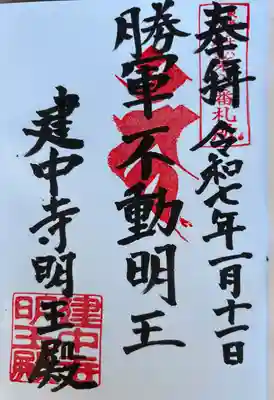 奉拝 令和七年一月十一日
勝軍不動明王
建中寺明王殿
建中寺
明王殿